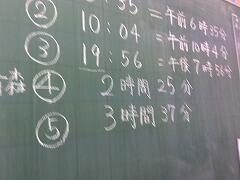 ② :35=午前6時35分
10:04=午前10時4分
③ 19:56=午後7時56分
森 ④ 2時間25分
⑤ 3時間37分